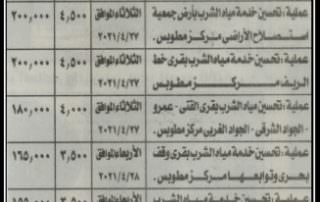 عملية: تحسين خدمة مياه الشرب بأرض جمعية
استصلاح الأراضى مركز مطوبس.
الثلاثاء الموافق
٢٠٢١/٤/٢٧
٤,٥٠٠
٢٠٠,٠٠٠
عملية: تحسين خدمة مياه الشرب بقرى خط
الريف مركز مطوبس.
الثلاثاء الموافق
٢٠٢١/٤/٢٧
٤,٥٠٠
٢٠٠,٠٠٠
عملية: تحسين خدمة مياه الشرب بقرى القنى - عمرو
- الجواد الشرقى - الجواد الغربى مركز مطوبس.
الثلاثاء الموافق
٢٠٢١/٤/٢٧
٤,٠٠٠
١٨٠,٠٠٠
عملية: تحسين خدمة مياه الشرب بقرى وقف
بحرى وتوابعها مركز مطوبس.
الأربعاء الموافق
٢٠٢١/٤/٢٨
٣,٥٠٠
١٦٥,٠٠٠
عملية: تحسين خدمة مياه الشرب
الأربعاء الموافق
٣,٥٠٠